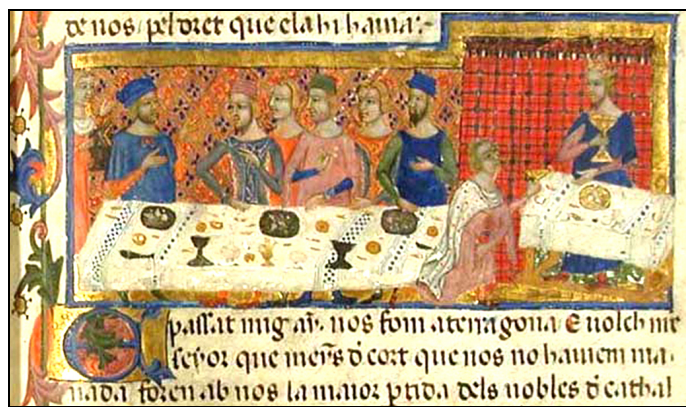 de nos / pel dret que ela hi hauia:~
E passat mig añ. nos fom aterragona E uolch nr̃e
seyor que meýs d̓ cort que nos no hauiem ma⸗
nada foren ab nos la maior ꝑtida dels nobles d̓ cathal